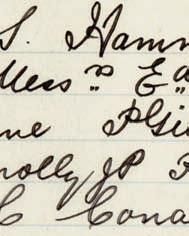 S. Hamm
Mess rs E d
ne P Gi
nolly JP F
C Cona